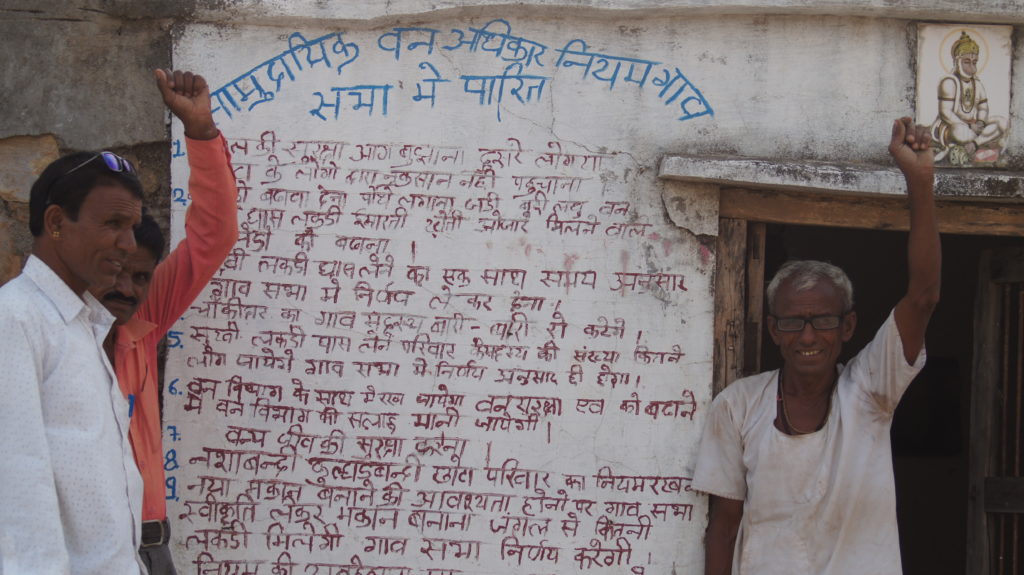 सामुदायिक वन अधिकार नियम गाव
सभा मे पारित
1. की सुरक्षा आग बुझाना द्वारे लोगया
के लोगो द्वारा नुकसान नही पहुचाना
2. को बढावा देना पोधे लगाना जडी बुटी लघु वन
घास लकडी इमारती खेती ओजार मिलने वाले
पेडो को बचाना ।
लकडी घास लेने का एक साथ समय अनुसार
गाव सभा मे निर्णय लेकर देना ।
चोकीदार का गाव सदस्य बारी - बारी से करेगे ।
5. सुखी लकडी घास लेने परिवार के सदस्य की संख्या कितने
लोग जायेगे गाव सभा मे निर्णय अनुसार ही होगा ।
6. वन विभाग के साथ मे रखा जायेगा वन सुरक्षा एव को बढाने
मे वन विभाग की सलाह मानी जायेगी ।
7. वन्य जीव की सुरक्षा करना ।
8. नशाबन्दी कुल्हाडीबन्दी छोटा परिवार का नियम रखना
9. नया मकान बनाने की आवश्यता होने पर गाव सभा
स्वीकृति लेकर मकान बनाना जंगल से कितनी
लकडी मिलेगी गाव सभा निर्णय करेगी ।
नियम की